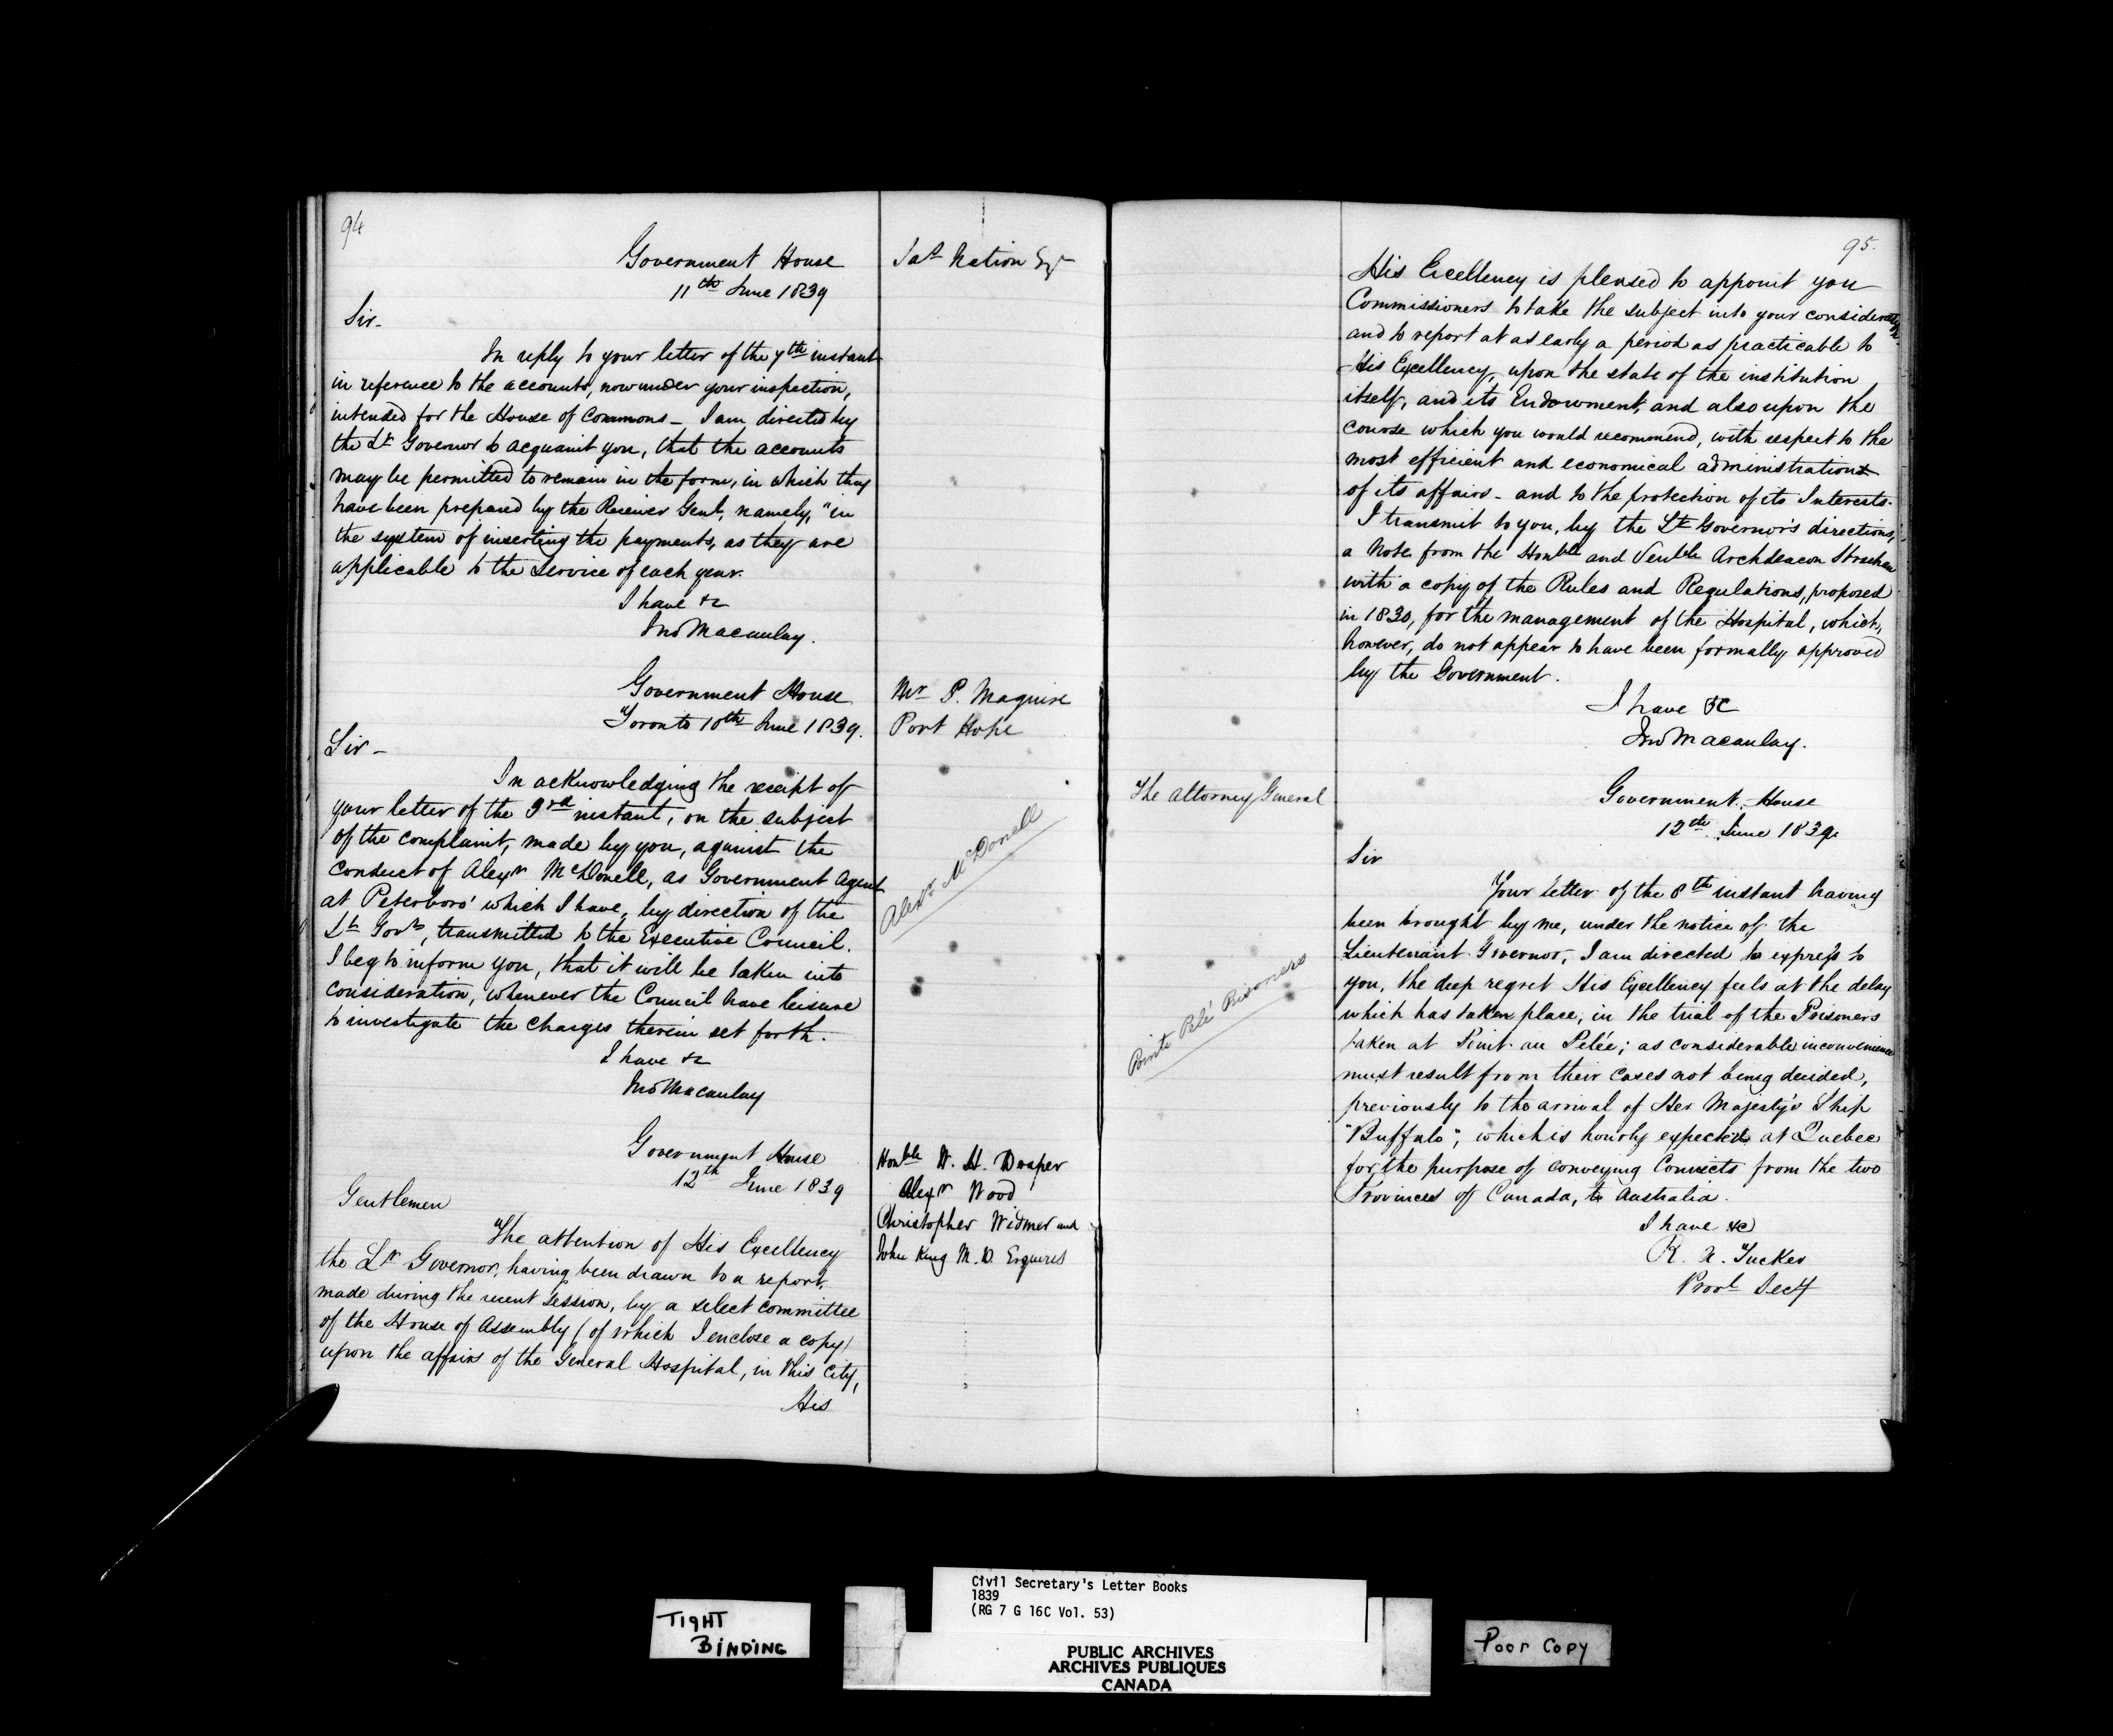 94
Government House
11th June 1839
Jas Nation Esqr
Sir-
In reply to your letter of the 7th instant
in reference to the accounts, now under your inspection,
intended for the House of Commons _ I am directed by
the Lt Governor to acquaint you, that the accounts
may be permitted to remain in the form, in which they
have been prepared by the Receiver Genl, namely, "in
the system of inserting the payments, as they are
applicable to the Service of each year.
I have &c
Jno Macaulay.
Government House
Toronto 10th June 1839.
Mr P. Maguire
Port Hope
Sir-
In acknowledging the receipt of
your letter of the 3rd instant, on the subject
of the complaint, made by you, against the
conduct of Alexr McDonell, as Government Agent
at Peterboro' which I have, by direction of the
Lt Govr, transmitted to the Executive Council.
I beg to inform you, that it will be taken into
consideration, whenever the Council have leisure
to investigate the charges therein set forth.
I have &c
Jno Macaulay
Alexr McDonell
Government House
12th June 1839
Honble W. H. Draper
Alexr Wood
Christopher Widmer and
John King M.D. Esquires
Gentlemen
The attention of His Excellency
the Lt Governor, having been drawn to a report,
made during the recent Session, by a select committee
of the House of Assembly (of which I enclose a copy)
upon the affairs of the General Hospital, in this City,
His
95.
His Excellency is pleased to appoint you
Commissioners to take the subject into your consideration
and to report at as early a period as practicable to
His Excellency, upon the state of the institution
itself, and its Endowment, and also upon the
course which you would recommend, with respect to the
most efficient and economical administration
of its affairs - and to the protection of its Interests.
I transmit to you, by the Lt Governor's directions,
a Note from the Honble and Venble Archdeacon Strachan
with a copy of the Rules and Regulations, proposed
in 1830, for the management of the Hospital, which,
however, do not appear to have been formally approved
by the Government.
I have &c
Jno Macaulay.
The Attorney General
Government House
12th June 1839.
Sir
Your letter of the 8th instant having
been brought by me, under the notice of the
Lieutenant Governor, I am directed to express to
you, the deep regret His Excellency feels at the delay
which has taken place, in the trial of the Prisoners
taken at Point au Pelée; as considerable inconvenience
must result from their cases not being decided,
previously to the arrival of Her Majesty's Ship
"Buffalo", which is hourly expected at Quebec
for the purpose of conveying Convicts from the two
Provinces of Canada, to Australia.
I have &c
R. A. Tucker
Provl Secy
Pointe Pelé Prisoners
TIGHT
BINDING
Civil Secretary's Letter Books
1839
(RG 7 G 16C Vol. 53)
PUBLIC ARCHIVES
ARCHIVES PUBLIQUES
CANADA
Poor Copy